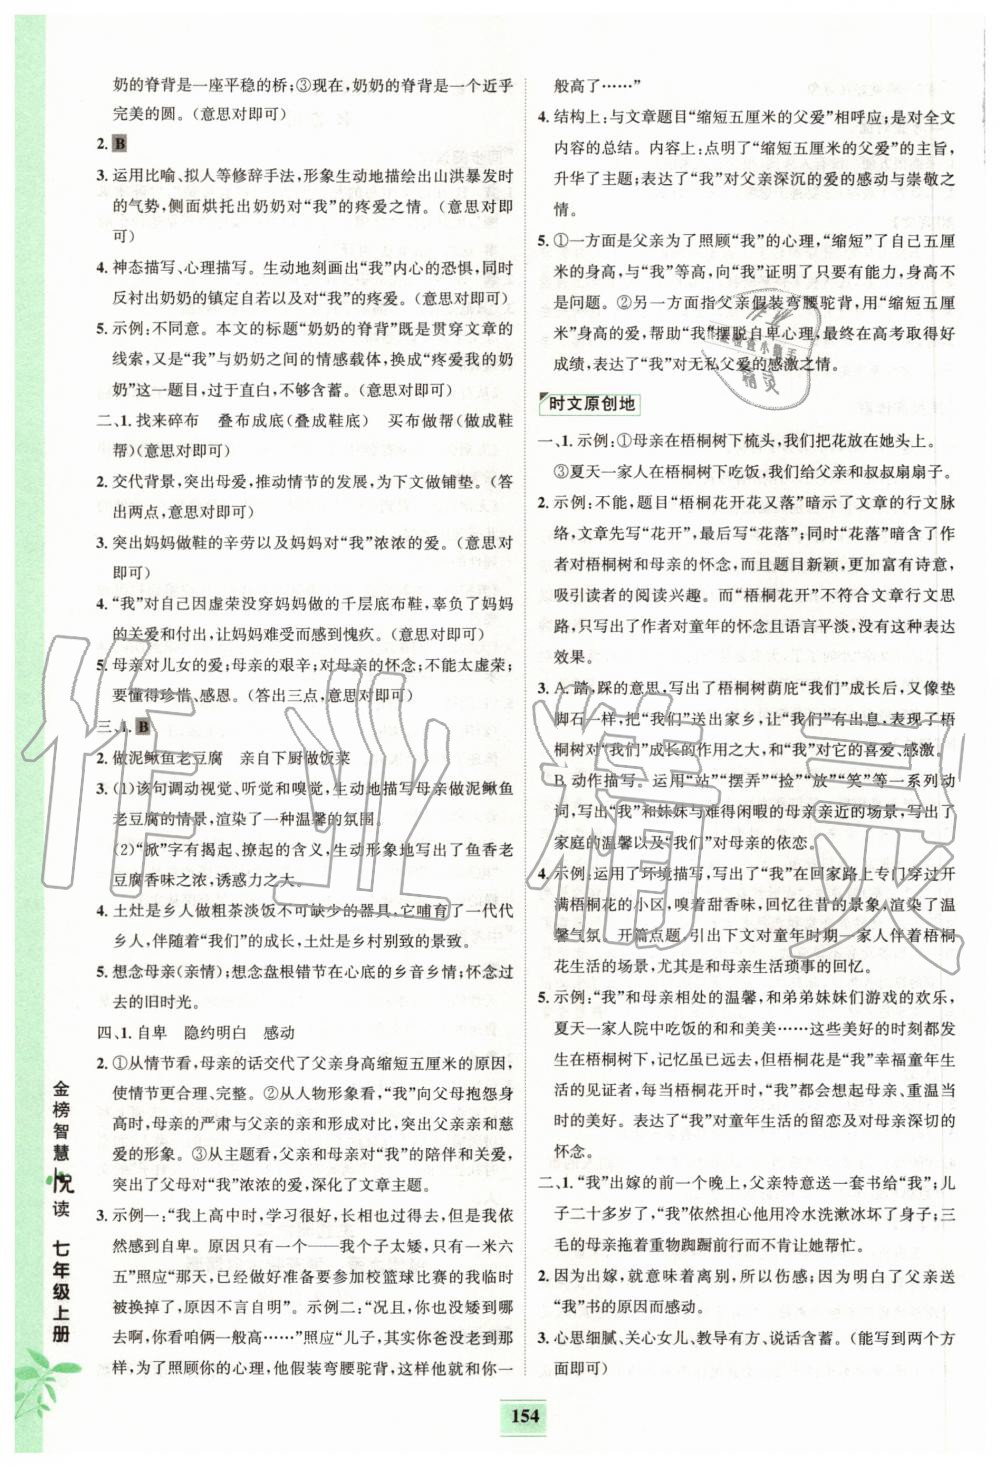 奶的脊背是一座平稳的桥；③现在，奶奶的脊背是一个近乎
完美的圆。（意思对即可）
2. B
3. 运用比喻、拟人等修辞手法，形象生动地描绘出山洪暴发时
的气势，侧面烘托出奶奶对“我”的疼爱之情。（意思对即
可）
4. 神态描写、心理描写。生动地刻画出“我”内心的恐惧，同时
反衬出奶奶的镇定自若以及对“我”的疼爱。（意思对即可）
5. 示例：不同意。本文的标题“奶奶的脊背”既是贯穿文章的
线索，又是“我”与奶奶之间的情感载体，换成“疼爱我的奶
奶”这一题目，过于直白，不够含蓄。（意思对即可）
二、1. 找来碎布　叠布成底（叠成鞋底）　买布做帮（做成鞋
帮）（意思对即可）
2. 交代背景，突出母爱，推动情节的发展，为下文做铺垫。（答
出两点，意思对即可）
3. 突出妈妈做鞋的辛劳以及妈妈对“我”浓浓的爱。（意思对
即可）
4. “我”对自己因虚荣没穿妈妈做的千层底布鞋，辜负了妈妈
的关爱和付出，让妈妈难受而感到愧疚。（意思对即可）
5. 母亲对儿女的爱；母亲的艰辛；对母亲的怀念；不能太虚荣；
要懂得珍惜、感恩。（答出三点，意思对即可）
三、1. B
2. 做泥鳅鱼老豆腐　亲自下厨做饭菜
3. (1)该句调动视觉、听觉和嗅觉，生动地描写母亲做泥鳅鱼
老豆腐的情景，渲染了一种温馨的氛围。
(2)“掀”字有揭起、撩起的含义，生动形象地写出了鱼香老
豆腐香味之浓，诱惑力之大。
4. 土灶是乡人做粗茶淡饭不可缺少的器具，它哺育了一代代
乡人，伴随着“我们”的成长，土灶是乡村别致的景致。
5. 想念母亲（亲情）；想念盘根错节在心底的乡音乡情；怀念过
去的旧时光。
四、1. 自卑　隐约明白　感动
2. ①从情节看，母亲的话交代了父亲身高缩短五厘米的原因，
使情节更合理、完整。②从人物形象看，“我”向父母抱怨身
高时，母亲的严肃与父亲的亲和形成对比，突出了父亲亲和
慈爱的形象。③从主题看，母亲对“我”的陪伴和关爱，
突出了父母对“我”浓浓的爱，深化了文章主题。
3. 示例一：“我上高中时，学习很好，长相也很好，但我仍然
感到自卑。原因只有一个——我个子太矮，只有一米六
五”照应“那天，已经参加校篮球比赛的我临时
被换掉了，原因不言自明”。示例二：“况且，你也没矮到哪
里，你看咱俩一般高……”照应“儿子，其实父亲和以前一
样，为了照顾你的心理，他假装弯腰驼背，这样他就和你一
般高了……”
4. 结构上：与文章题目“缩短五厘米的父爱”相呼应；是对全文
内容的总结。内容上：点明了“缩短五厘米的父爱”的主旨，
升华了主题；表达了“我”对父亲深沉的爱的感动与崇敬之
情。
5. ①一方面是父亲为了照顾“我”的心理，“缩短”了自己五厘
米的身高，与“我”等高，向“我”证明了只要有能力，身高并不
是问题。②另一方面指父亲假装弯腰驼背，用“缩短五厘米”
身高的爱，帮助“我”摆脱自卑心理，最终在高考取得好
成绩，表达了“我”对无私父爱的感激之情。
时文原创地
一、1. 示例：①母亲在梧桐树下梳头，我们把花放在她头上。
③夏天一家人在梧桐树下吃饭，我们给父亲和叔叔扇扇子。
2. 示例：不能，题目“梧桐花开花又落”暗示了文章的行文脉
络，文章先写“花开”，最后写“花落”；同时“花落”暗含了作
者对梧桐树和母亲的怀念，而且题目新颖，更富有诗意，
吸引读者的阅读兴趣。而“梧桐花开”不符合文章行文思
路，只写出了作者对童年的怀念且语言平淡，没有这种表达
效果。
3. A. 踏，踩的意思，写出了梧桐树荫庇“我们”成长后，又像垫
脚石一样，把“我们”送出家乡，力求形象，突出了梧
桐树对“我们”成长的作用之大；写出了“我们”对它的喜爱、感激。
B. 动作描写。运用“站”“摆弄”“捡”“放”“笑”等一系列动
词，写出了“我”和妹妹与难得闲暇的母亲亲近的场景，写出了
家庭的温馨以及“我们”对母亲的依恋。
4. 示例：运用了环境描写，描写了在回家路上专门穿过开
满梧桐花的小区，嗅着甜香味，回忆往昔的景象，渲染了温
馨气氛。开篇点题，引出下文对童年时期一家人伴着梧桐
花生活的场景，尤其是和母亲生活琐事的回忆。
5. 示例：“我”和母亲相处的温馨，和弟弟妹妹们游戏的欢乐，
夏天一家人院中吃饭的和和美美……这些美好的时刻都发
生在梧桐树下，记忆虽已远去，但梧桐花“我”幸福童年生
活的见证，每当梧桐花开时，“我”就会想起母亲、重温当
时的美好。表达了“我”对童年生活的留恋及对母亲深切的
怀念。
二、1. “我”出嫁的前一个晚上，父亲特意送一套书给“我”；儿
子二十多岁了，“我”依然担心他用冷水洗漱冰坏了身子；三
毛的母亲拖着重物踟蹰前行却不让她帮忙。
2. 因为出嫁，就意味着分离，所以伤感；因为明白了父亲送
“我”书的原因而感动。
3. 心思细腻、关心女儿、教导有方、说话含蓄。（能写到两个方
面即可）
金榜智慧阅读　七年级上册
154
作业精灵